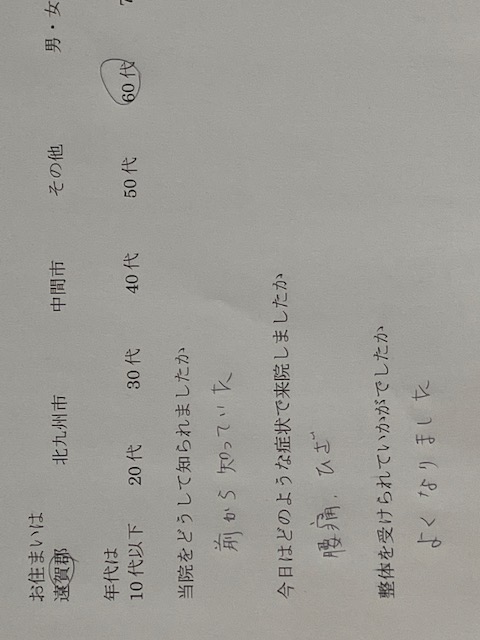 お住まいは 男・女
遠賀郡 北九州市 中間市 その他
年代は
10代以下 20代 30代 40代 50代 60代 7
当院をどうして知られましたか
前から知っていた
今日はどのような症状で来院しましたか
腰痛、ひざ
整体を受けられていかがでしたか
よくなりました